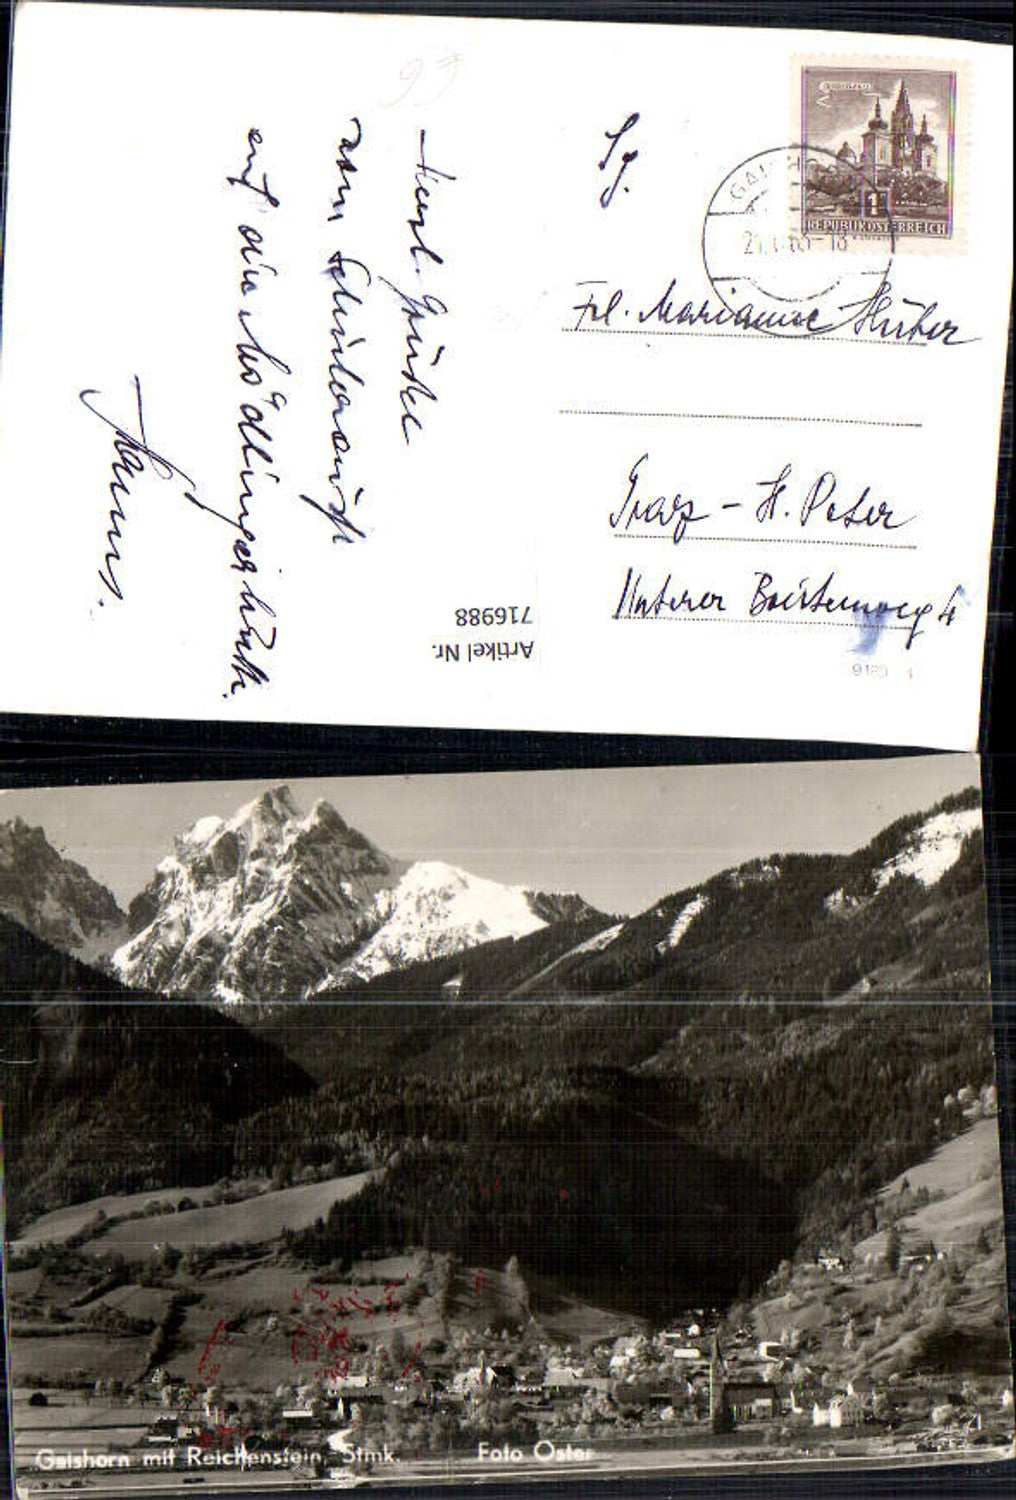 Herzl. Grüße
vom Schiurlaub
auf der Mödlingerhütte.
Hans.
Sg.
Frl. Marianne Huber
Graz - St. Peter
Unterer Breitenweg 4
REPUBLIK ÖSTERREICH
1
Artikel Nr.
716988
Gaishorn mit Reichenstein, Stmk. Foto Oster